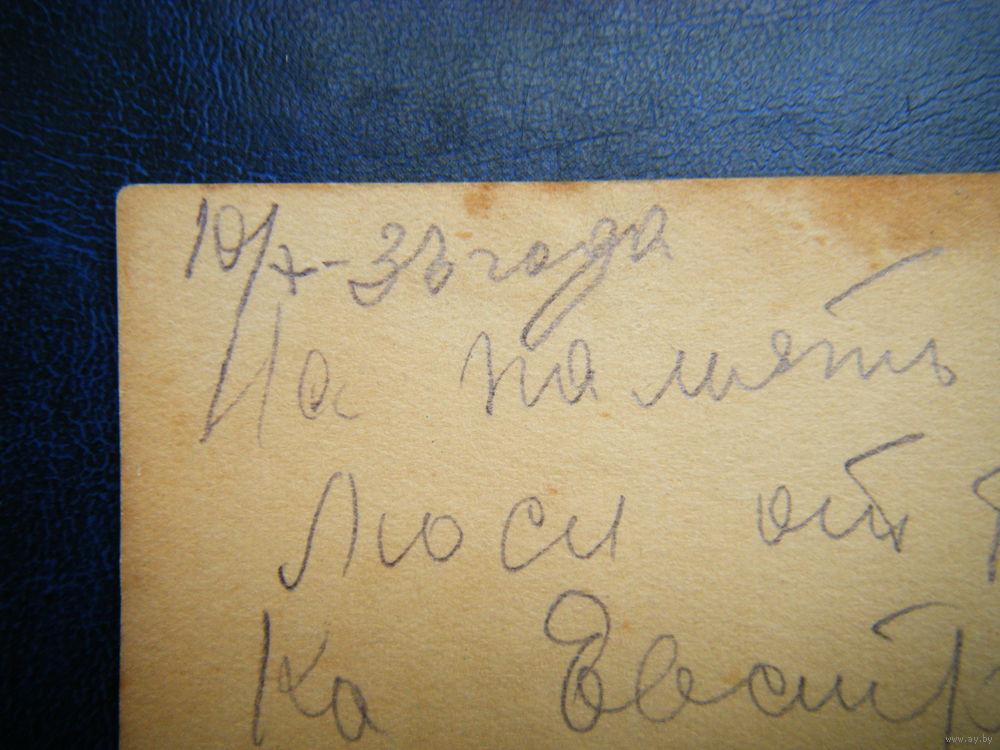 10/X-33 года
На память
Люси от
ка
www.ay.by